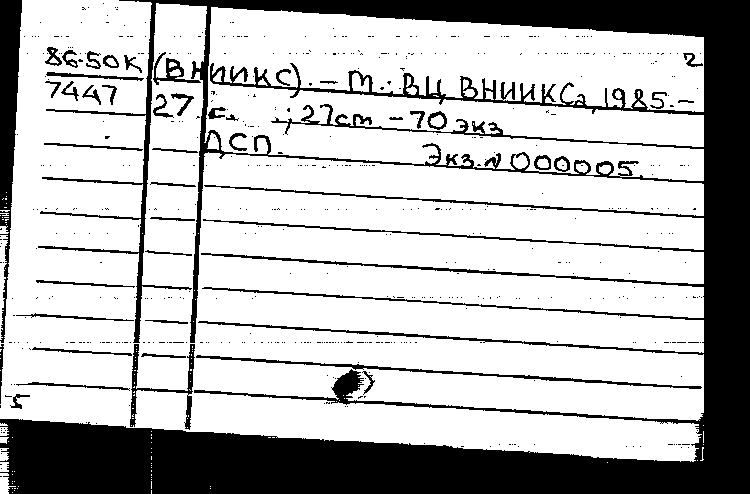 2
86-50К (ВНИИКС). – М.: ВЦ ВНИИКСа, 1985. –
7447 27 с. ; 27 см – 70 экз
ДСП. Экз. № 000005.
5